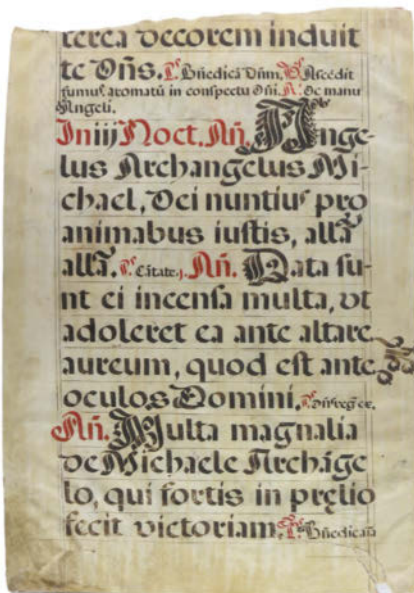 terea decorem induit
te Dñs. ℟. Bñedicã Dñm, ℣. Ascẽdit
fumus aromatũ in conspectu Dñi. ℟. De manu
Angeli.
In iij Noct. Añ. Ange-
lus Archangelus Mi-
chael, Dei nuntius pro
animabus iustis, alĺa
alĺa. Cãtate. Añ. Data su-
nt ei incensa multa, vt
adoleret ea ante altare
aureum, quod est ante
oculos Domini.
Añ. Multa magnalia
de Michaele Archãge
lo, qui fortis in pręlio
fecit victoriam. Bñedicam